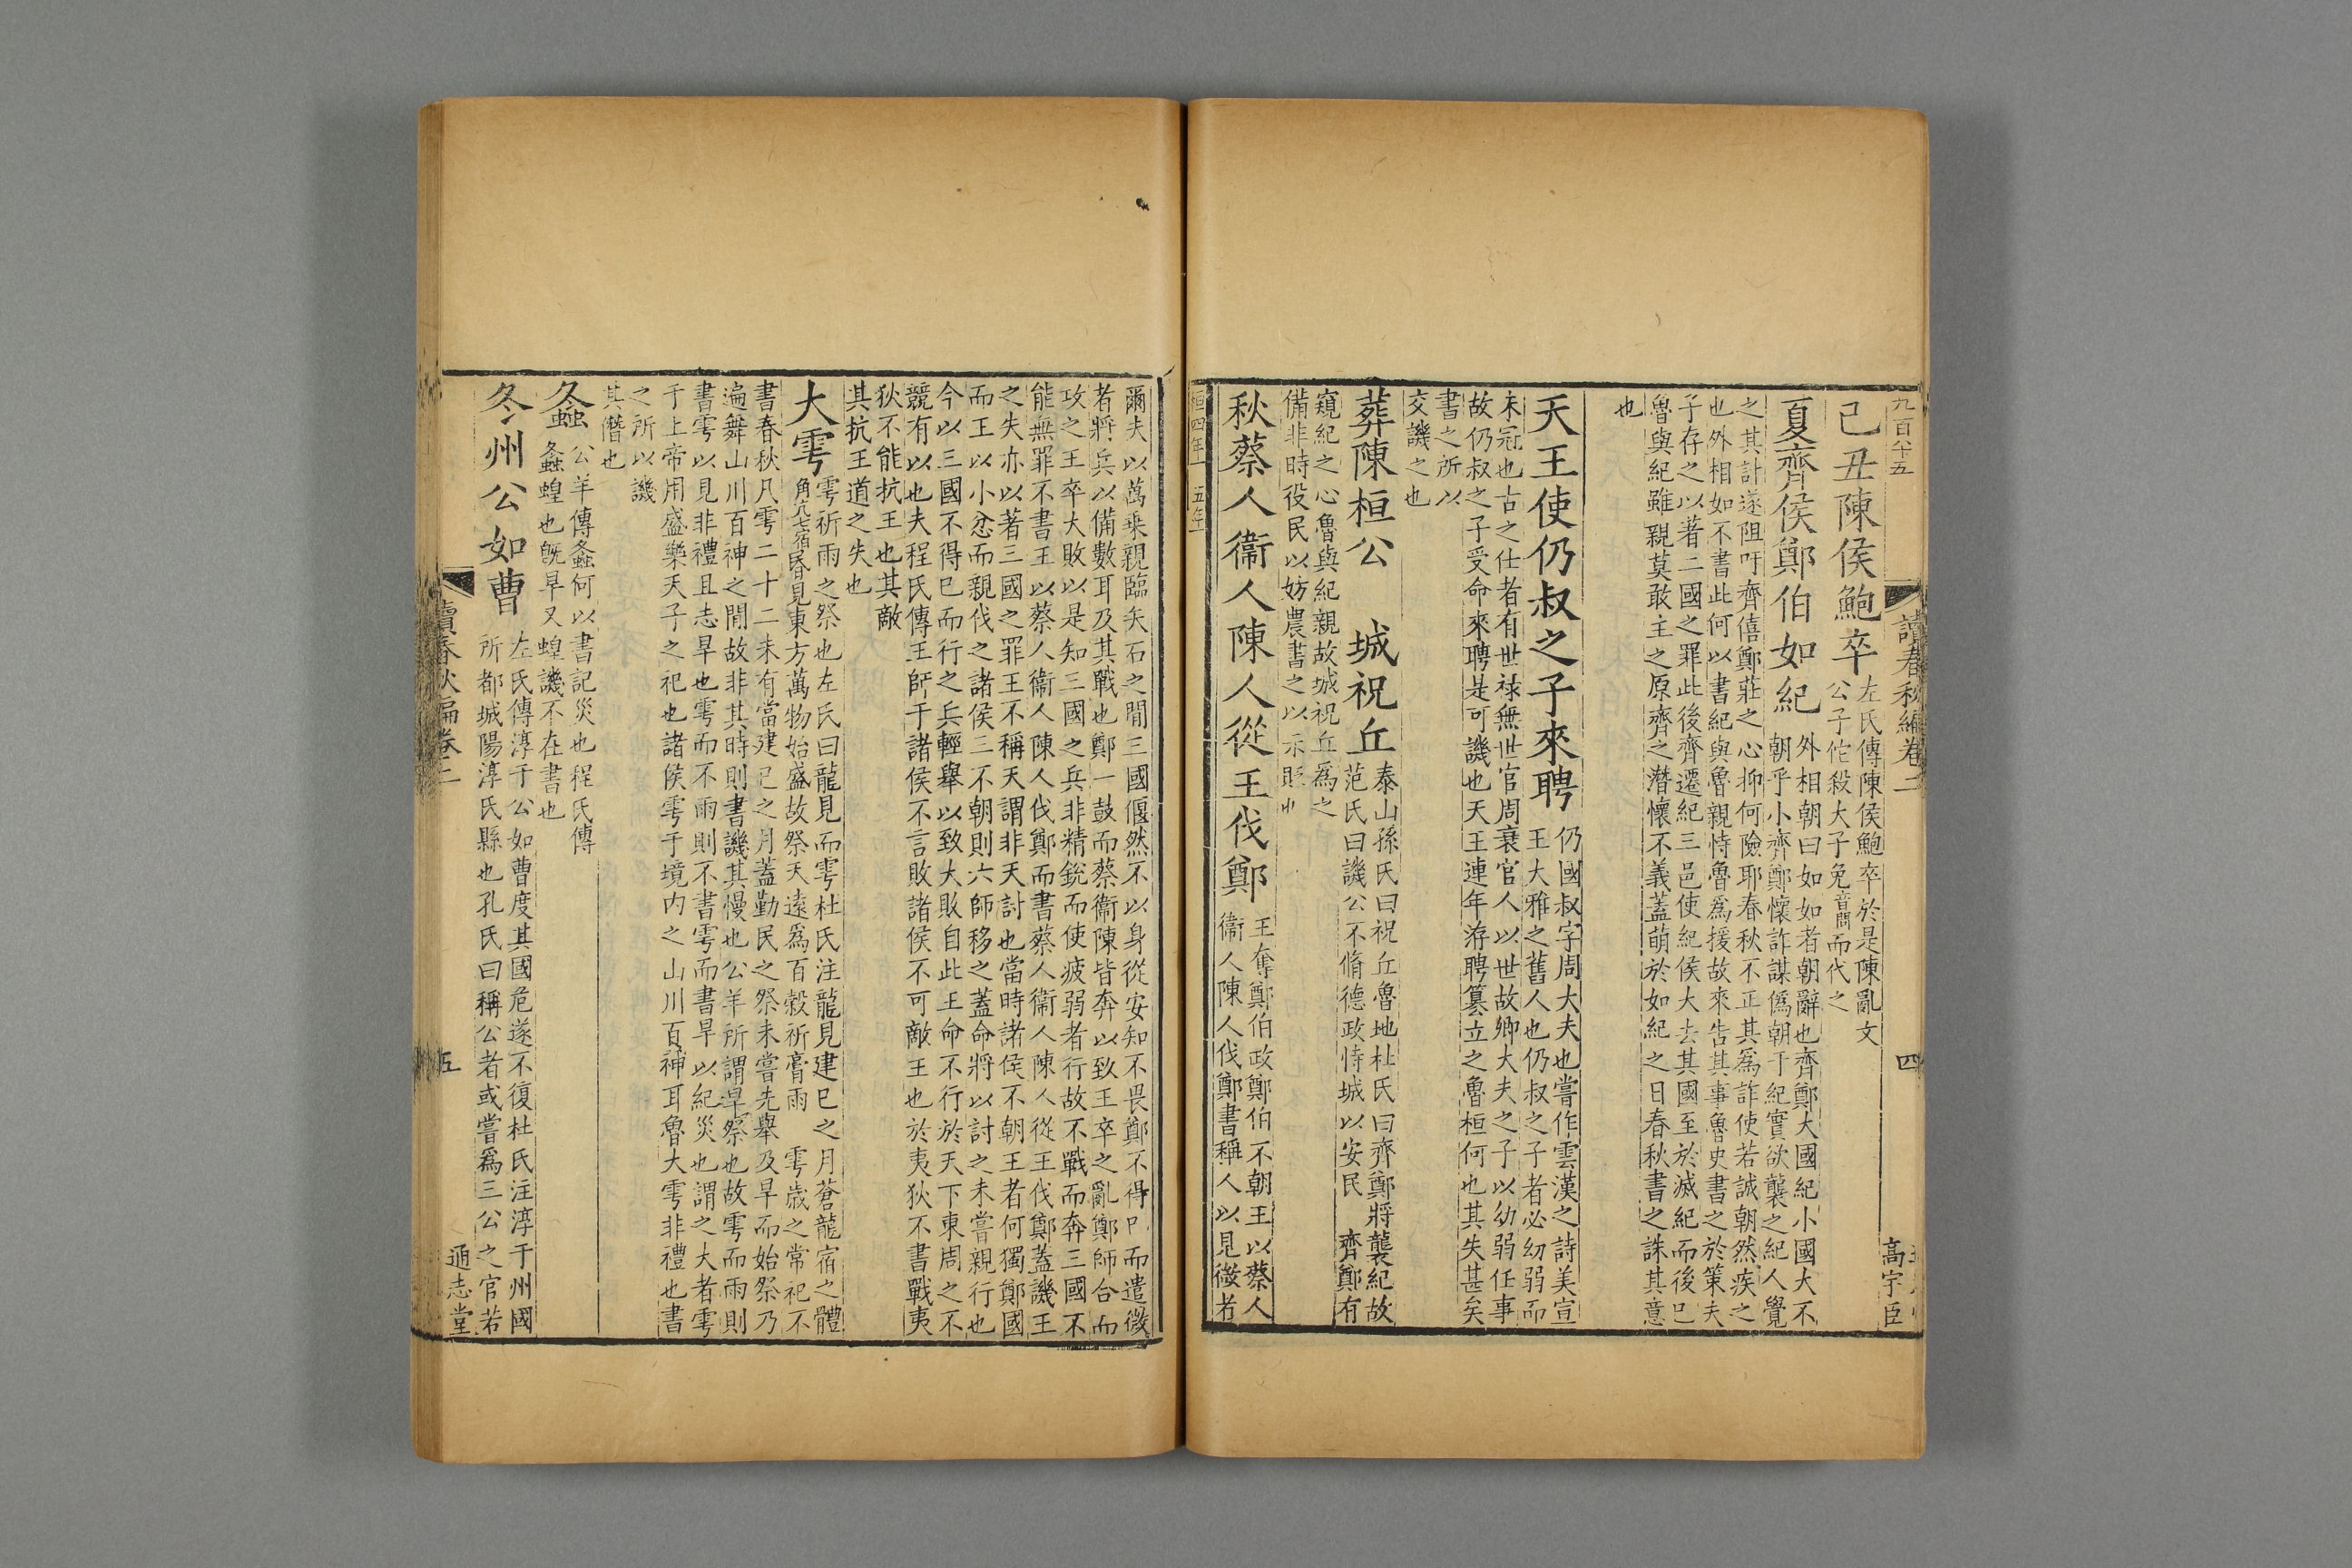 九百八十五
讀春秋編卷二
四
高宇臣
己丑陳侯鮑卒
左氏傳陳侯鮑卒於是陳亂文
公子佗殺大子免音問而代之
夏齊侯鄭伯如紀
外相朝曰如如者朝辭也齊鄭大國紀小國大不
朝乎小齊鄭懷詐謀僞朝于紀實欲襲之紀人覺
之其計遂阻吁齊僖鄭莊之心抑何險耶春秋不正其爲詐使若誠朝然疾之
也外相如不書此何以書紀與魯親恃魯爲援故來告其事魯史書之於策夫
子存之以著二國之罪此後齊遷紀三邑使紀侯大去其國至於滅紀而後已
魯與紀雖親莫敢主之原齊之潛懷不義蓋萌於如紀之日春秋書之誅其意
也
天王使仍叔之子來聘
仍國叔字周大夫也嘗作雲漢之詩美宣
王大雅之舊人也仍叔之子者必幼弱而
未冠也古之仕者有世祿無世官周衰官人以世故卿大夫之子以幼弱任事
故仍叔之子受命來聘是可譏也天王連年洊聘篡立之魯桓何也其失甚矣
書之所以
交譏之也
葬陳桓公
城祝丘
泰山孫氏曰祝丘魯地杜氏曰齊鄭將襲紀故
范氏曰譏公不脩德政恃城以安民 齊鄭有
窺紀之心魯與紀親故城祝丘爲之
備非時役民以妨農書之以示貶
秋蔡人衞人陳人從王伐鄭
王奪鄭伯政鄭伯不朝王以蔡人
衞人陳人伐鄭書稱人以見微者
桓四年 五年
爾夫以萬乘親臨矢石之間三國偃然不以身從安知不畏鄭不得已而遣微
者將兵以備數耳及其戰也鄭一鼓而蔡衞陳皆奔以致王卒之亂鄭師合而
攻之王卒大敗以是知三國之兵非精銳而使疲弱者行故不戰而奔三國不
能無罪不書王以蔡人衞人陳人伐鄭而書蔡人衞人陳人從王伐鄭蓋譏王
之失亦以著三國之罪王不稱天謂非天討也當時諸侯不朝王者何獨鄭國
而王以小忿而親伐之諸侯三不朝則六師移之蓋命將以討之未嘗親行也
今以三國不得已而行之兵輕舉以致大敗自此王命不行於天下東周之不
競有以也夫程氏傳王師于諸侯不言敗諸侯不可敵王也於夷狄不書戰夷
狄不能抗王也其敵
其抗王道之失也
大雩
雩祈雨之祭也左氏曰龍見而雩杜氏注龍見建巳之月蒼龍宿之體
角亢七宿昏見東方萬物始盛故祭天遠爲百穀祈膏雨 雩歲之常祀不
書春秋凡雩二十二未有當建巳之月蓋勤民之祭未嘗先舉及旱而始祭乃
遍舞山川百神之間故非其時則書譏其慢也公羊所謂旱祭也故雩而雨則
書雩以見非禮且志旱也雩而不雨則不書雩而書旱以紀災也謂之大者雩
于上帝用盛樂天子之祀也諸侯雩于境內之山川百神耳魯大雩非禮也書
之所以譏
其僭也
螽
公羊傳螽何以書記災也程氏傳
螽蝗也旣旱又蝗譏不在書也
冬州公如曹
左氏傳淳于公如曹度其國危遂不復杜氏注淳于州國
所都城陽淳氏縣也孔氏曰稱公者或嘗爲三公之官若
讀春秋編卷二
五
通志堂